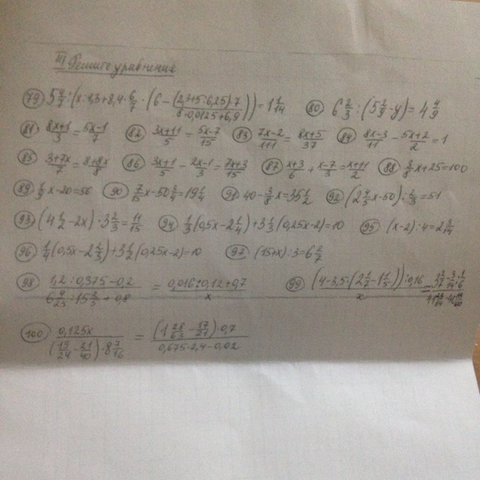 III Решите уравнение
79) 5 4/7 : (x - 1,3 + 8,4 · 6/7 · (6 - (2,3+5:6,25)·7 / (8·0,0125+6,9))) = 1 1/14 80) 6 2/3 : (5 2/9 - y) = 4 4/9
81) (8x+1)/3 = (5x-1)/7 82) (3x+11)/5 = (5x-7)/15 83) (7x-2)/111 = (8x+5)/37 84) (8x-3)/11 - (5x+2)/2 = 1
85) (3+7x)/7 = (8+8x)/8 86) (3x+1)/5 - (2x-1)/3 = (7x+3)/15 87) (x+3)/6 + (x-7)/3 = (x+11)/2 88) x + 25 = 100
89) x - 20 = 56 90) 7/15 x - 50 3/4 = 19 1/4 91) 40 - 3/8 x = 35 1/2 92) (2 x - 50) : 2/3 = 51
93) (4 1/2 - 2x) : 3 2/3 = 11/15 94) 1/3 (0,5x - 2 1/4) + 3 1/3 (0,25x - 2) = 10 95) (x - 2) : 4 = 2 3/14
96) (0,5x - 2 1/3) + 3 (0,25x - 2) = 10 97) (15+x) : 3 = 6 2/2
98) (1,2 : 0,375 - 0,2) / (6 4/25 : 15 2/5 + 0,8) = (0,016:0,12+0,7) / x 99) (4 - 3,5 · (2 1/7 - 1 1/5)) : 0,16 / x =
100) 0,125x / ((19/24 - 21/40) · 8 7/16) = (1 28/63 - 17/21) · 0,7 / (0,675 · 2,4 - 0,02)